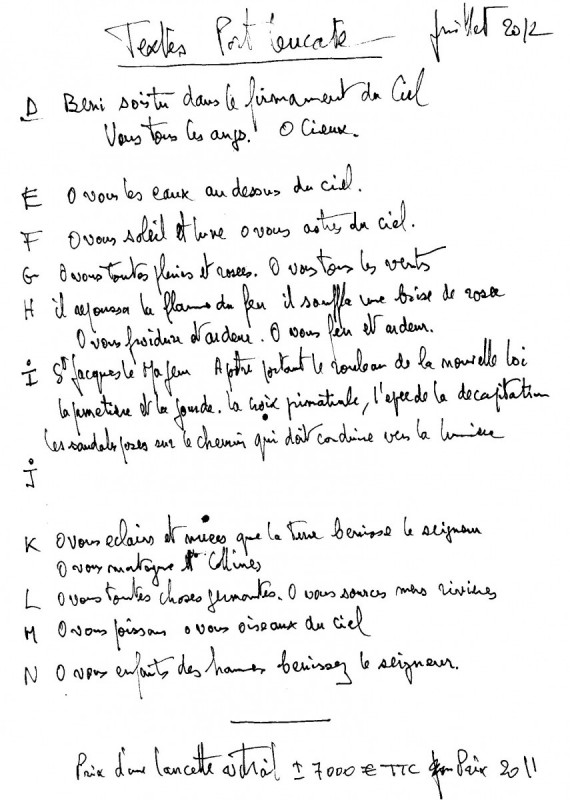 Textes Port Leucate juillet 2012
D Beni sois tu dans le firmament du Ciel
Vous tous les anges. O Cieux.
E O vous les eaux au dessus du ciel.
F O vous soleil et lune o vous astres du ciel.
G O vous toutes pluies et rosees. O vous tous les vents
H il repoussa la flamme du feu il souffla une brise de rosee
O vous froidure et ardeur. O vous feu et ardeur.
I St Jacques le Majeur Apotre portant le rouleau de la nouvelle loi
la et la gourde. la croix primatiale, l'epee de la decapitation
les sandales posees sur le chemin qui doit conduire vers la lumiere
J
K O vous eclairs et nuees que la terre benisse le seigneur
O vous montagne et Collines
L O vous toutes choses germantes. O vous sources mers rivieres
M O vous poissons o vous oiseaux du ciel
N O vous enfants des hommes benissez le seigneur.
Prix d'une lancette vitrail ± 7000 € TTC Prix 2011